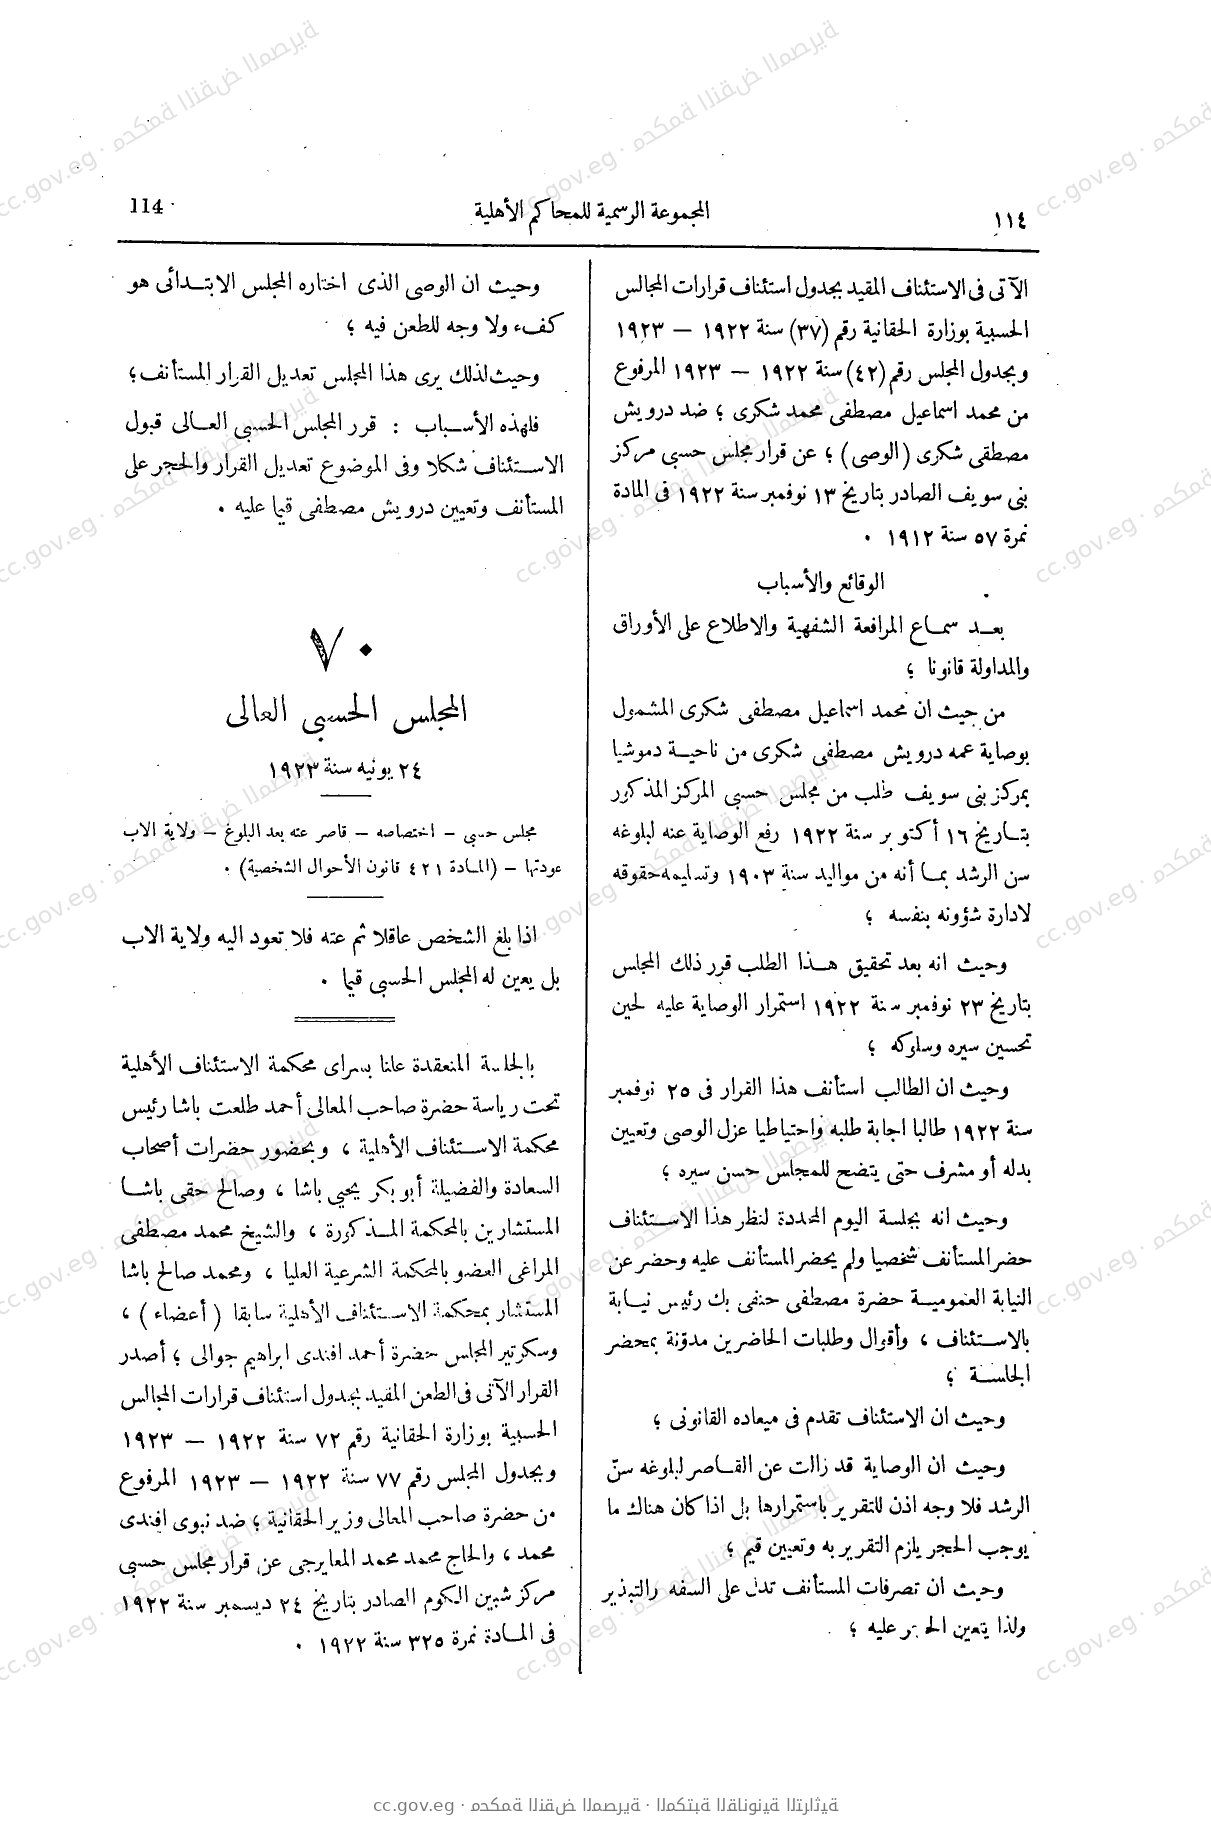 ١١٤
المجموعة الرسمية للمحاكم الأهلية
114
الآتى فى الاستئناف المقيد بجدول استئناف قرارات المجالس
الحسبية بوزارة الحقانية رقم (٣٧) سنة ١٩٢٢ — ١٩٢٣
وبجدول المجلس رقم (٤٢) سنة ١٩٢٢ — ١٩٢٣ المرفوع
من محمد اسماعيل مصطفى محمد شكرى ؛ ضد درويش
مصطفى شكرى (الوصى) ؛ عن قرار مجلس حسبى مركز
بنى سويف الصادر بتاريخ ١٣ نوفمبر سنة ١٩٢٢ فى المادة
نمرة ٥٧ سنة ١٩١٢ .
الوقائع والأسباب
بعد سماع المرافعة الشفهية والاطلاع على الأوراق
والمداولة قانونا ؛
من حيث ان محمد اسماعيل مصطفى شكرى المشمول
بوصاية عمه درويش مصطفى شكرى من ناحية دموشيا
بمركز بنى سويف طلب من مجلس حسبى المركز المذكور
بتاريخ ١٦ أكتوبر سنة ١٩٢٢ رفع الوصاية عنه لبلوغه
سن الرشد بما أنه من مواليد سنة ١٩٠٣ وتسليمه حقوقه
لادارة شؤونه بنفسه ؛
وحيث انه بعد تحقيق هذا الطلب قرر ذلك المجلس
بتاريخ ٢٣ نوفمبر سنة ١٩٢٢ استمرار الوصاية عليه لحين
تحسين سيره وسلوكه ؛
وحيث ان الطالب استأنف هذا القرار فى ٢٥ نوفمبر
سنة ١٩٢٢ طالبا اجابة طلبه واحتياطيا عزل الوصى وتعيين
بدله أو مشرف حتى يتضح للمجلس حسن سيره ؛
وحيث انه بجلسة اليوم المحددة لنظر هذا الاستئناف
حضر المستأنف شخصيا ولم يحضر المستأنف عليه وحضر عن
النيابة العمومية حضرة مصطفى حنفى بك رئيس نيابة
بالاستئناف ، وأقوال وطلبات الحاضرين مدوّنة بمحضر
الجلسة ؛
وحيث ان الاستئناف تقدم فى ميعاده القانونى ؛
وحيث ان الوصاية قد زالت عن القاصر لبلوغه سنّ
الرشد فلا وجه اذن للتقرير باستمرارها بل اذا كان هناك ما
يوجب الحجر يلزم التقرير به وتعيين قيم ؛
وحيث ان تصرفات المستأنف تدل على السفه والتبذير
ولذا يتعين الحجر عليه ؛
وحيث ان الوصى الذى اختاره المجلس الابتدائى هو
كفء ولا وجه للطعن فيه ؛
وحيث لذلك يرى هذا المجلس تعديل القرار المستأنف ؛
فلهذه الأسباب : قرر المجلس الحسبى العالى قبول
الاستئناف شكلا وفى الموضوع تعديل القرار والحجر على
المستأنف وتعيين درويش مصطفى قيما عليه .
٧٠
المجلس الحسبى العالى
٢٤ يونيه سنة ١٩٢٣
مجلس حسبى – اختصاصه – قاصر عته بعد البلوغ – ولاية الاب
عودتها – (المادة ٤٢١ قانون الأحوال الشخصية) .
اذا بلغ الشخص عاقلا ثم عته فلا تعود اليه ولاية الاب
بل يعين له المجلس الحسبى قيما .
بالجلسة المنعقدة علنا بسراى محكمة الاستئناف الأهلية
تحت رياسة حضرة صاحب المعالى أحمد طلعت باشا رئيس
محكمة الاستئناف الأهلية ، وبحضور حضرات أصحاب
السعادة والفضيلة أبو بكر يحيى باشا ، وصالح حقى باشا
المستشارين بالمحكمة المذكورة ، والشيخ محمد مصطفى
المراغى العضو بالمحكمة الشرعية العليا ، ومحمد صالح باشا
المستشار بمحكمة الاستئناف الأهلية سابقا ( أعضاء ) ،
وسكرتير المجلس حضرة أحمد افندى ابراهيم جوالى ؛ أصدر
القرار الآتى فى الطعن المقيد بجدول استئناف قرارات المجالس
الحسبية بوزارة الحقانية رقم ٧٢ سنة ١٩٢٢ — ١٩٢٣
وبجدول المجلس رقم ٧٧ سنة ١٩٢٢ — ١٩٢٣ المرفوع
من حضرة صاحب المعالى وزير الحقانية ؛ ضد نبوى افندى
محمد ، والحاج محمد محمد المعايرجى عن قرار مجلس حسبى
مركز شبين الكوم الصادر بتاريخ ٢٤ ديسمبر سنة ١٩٢٢
فى المادة نمرة ٣٢٥ سنة ١٩٢٢ .
cc.gov.eg · محكمة النقض المصرية · المكتبة القانونية التراثية